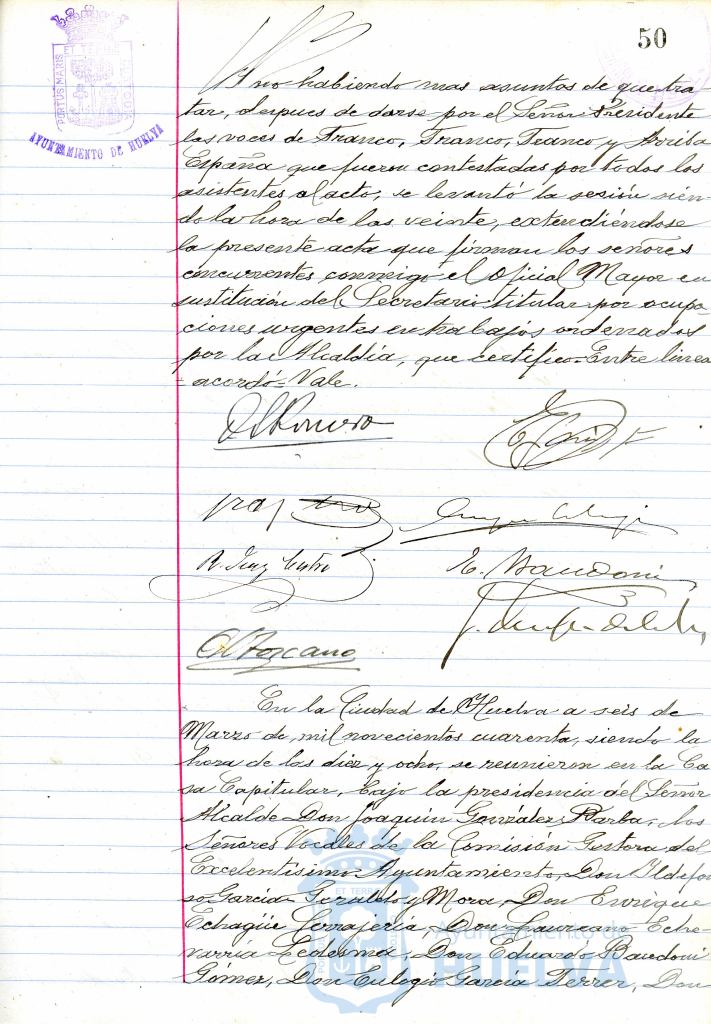 50
PORTUS MARIS ET TERRAE CUSTODIA
AYUNTAMIENTO DE HUELVA
Y no habiendo mas asuntos de que tra-
tar, despues de darse por el Señor Presidente
las voces de Franco, Franco, Franco, y Arriba
España que fueron contestadas por todos los
asistentes al acto, se levantó la sesión sien-
do la hora de las veinte, extendiéndose
la presente acta que firman los señores
concurrentes conmigo el Oficial Mayor en
sustitución del Secretario titular por ocupa-
ciones urgentes en trabajos ordenados
por la Alcaldía, que certifico=Entre linea
=acordó=Vale.
Romero
E. Baudoni
En la Ciudad de Huelva a seis de
Marzo de mil novecientos cuarenta, siendo la
hora de las diez y ocho, se reunieron en la Ca-
sa Capitular, bajo la presidencia del Señor
Alcalde Don Joaquin González Barba, los
Señores Vocales de la Comisión Gestora del
Excelentisimo Ayuntamiento, Don Ildefon-
so García y Mora, Don Enrique
Echagüe Don Laureano Eche-
varria Ledesma, Don Eduardo Baudoni
Gómez, Don Eulogio García Ferrer, Don
ET TERRAE
Ayuntamiento de
HUELVA